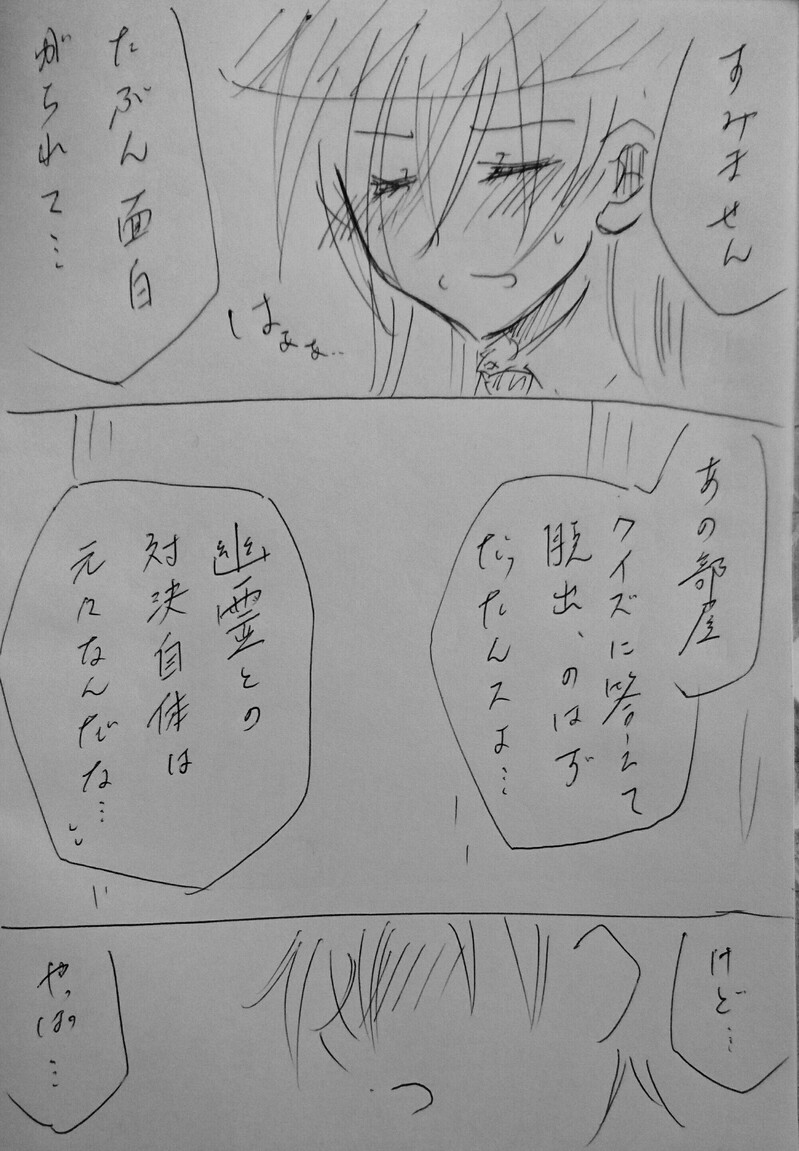 すみません
たぶん面白
がられて…
はぁぁ…
あの部屋
クイズに答えて
脱出、のはず
だったんスよ…
幽霊との
対決自体は
元々なんだな…
けど…
やっぱ…